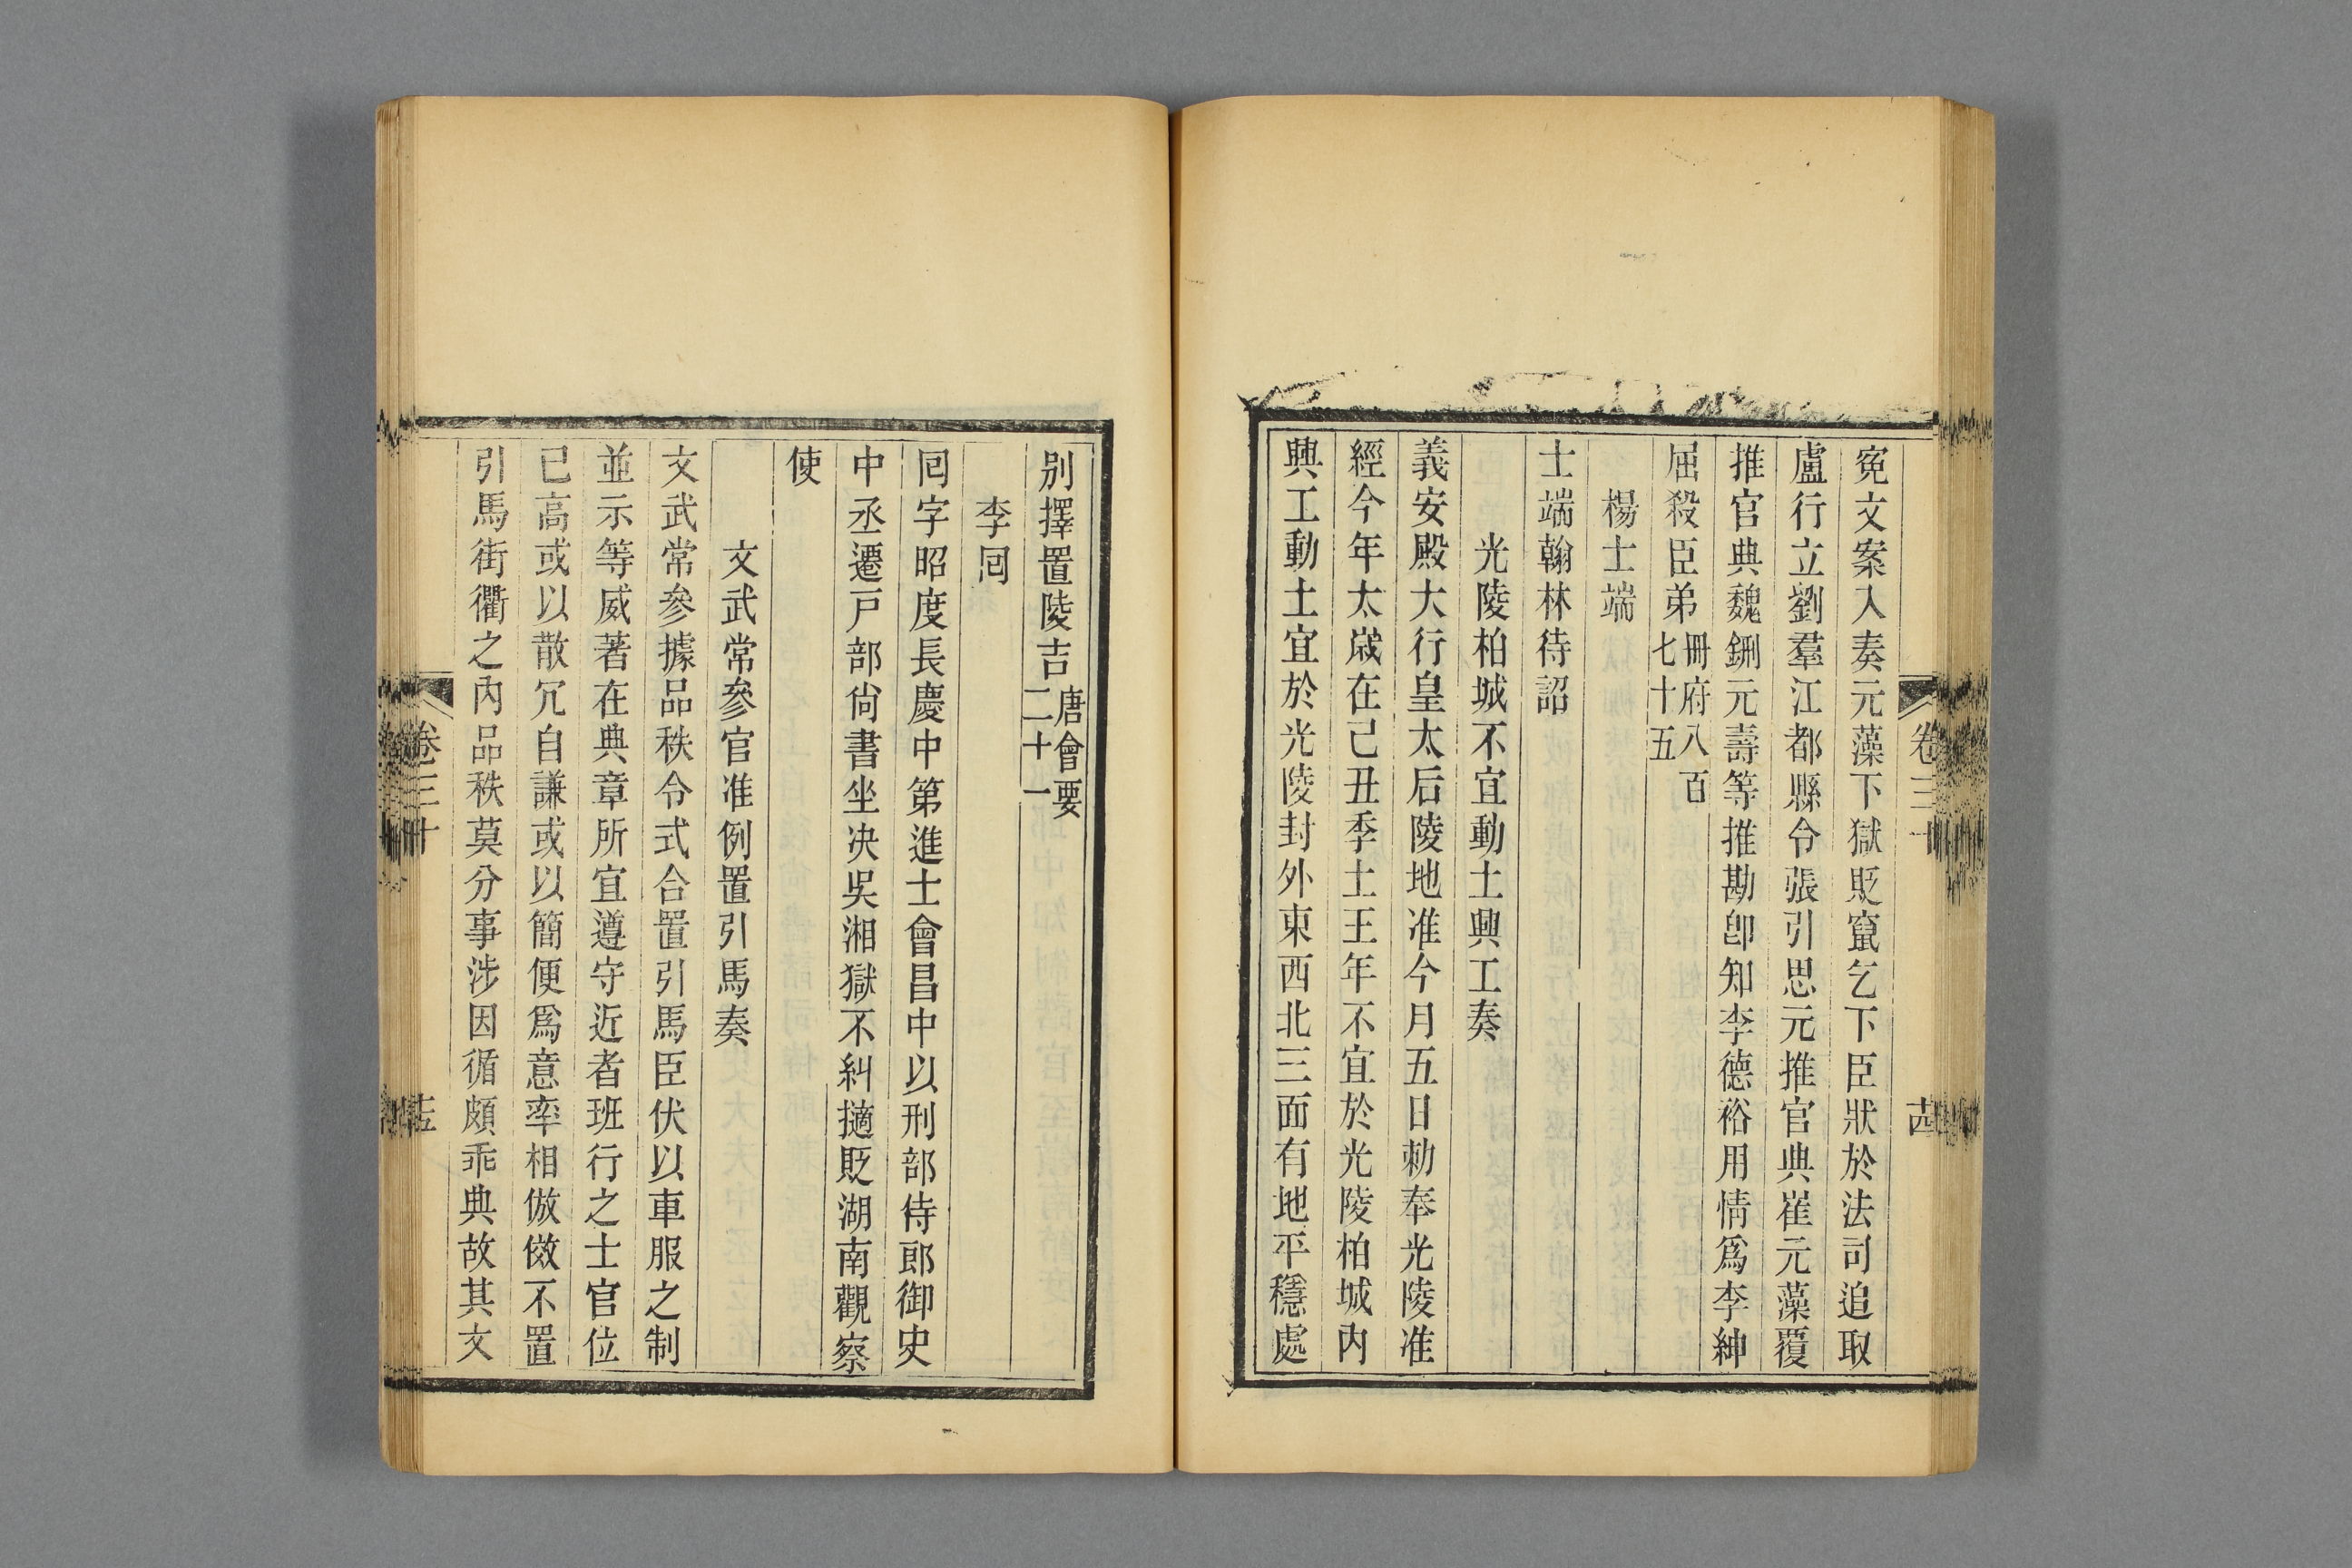 寃文案入奏元藻下獄貶竄乞下臣狀於法司追取
盧行立劉羣江都縣令張引思元推官典崔元藻覆
推官典魏鉶元壽等推勘卽知李德裕用情爲李紳
屈殺臣弟冊府八百七十五
楊士端
士端翰林待詔
光陵柏城不宜動土興工奏
義安殿大行皇太后陵地准今月五日勅奉光陵准
經今年太歲在己丑季土王年不宜於光陵柏城內
興工動土宜於光陵封外東西北三面有地平穩處
卷三十
十四
別擇置陵吉唐會要二十一
李囘
囘字昭度長慶中第進士會昌中以刑部侍郎御史
中丞遷戸部尙書坐決吳湘獄不糾擿貶湖南觀察
使
文武常參官准例置引馬奏
文武常參據品秩令式合置引馬臣伏以車服之制
並示等威著在典章所宜遵守近者班行之士官位
已高或以散冗自謙或以簡便爲意率相倣傚不置
引馬街衢之內品秩莫分事涉因循頗乖典故其文
卷三十
十五